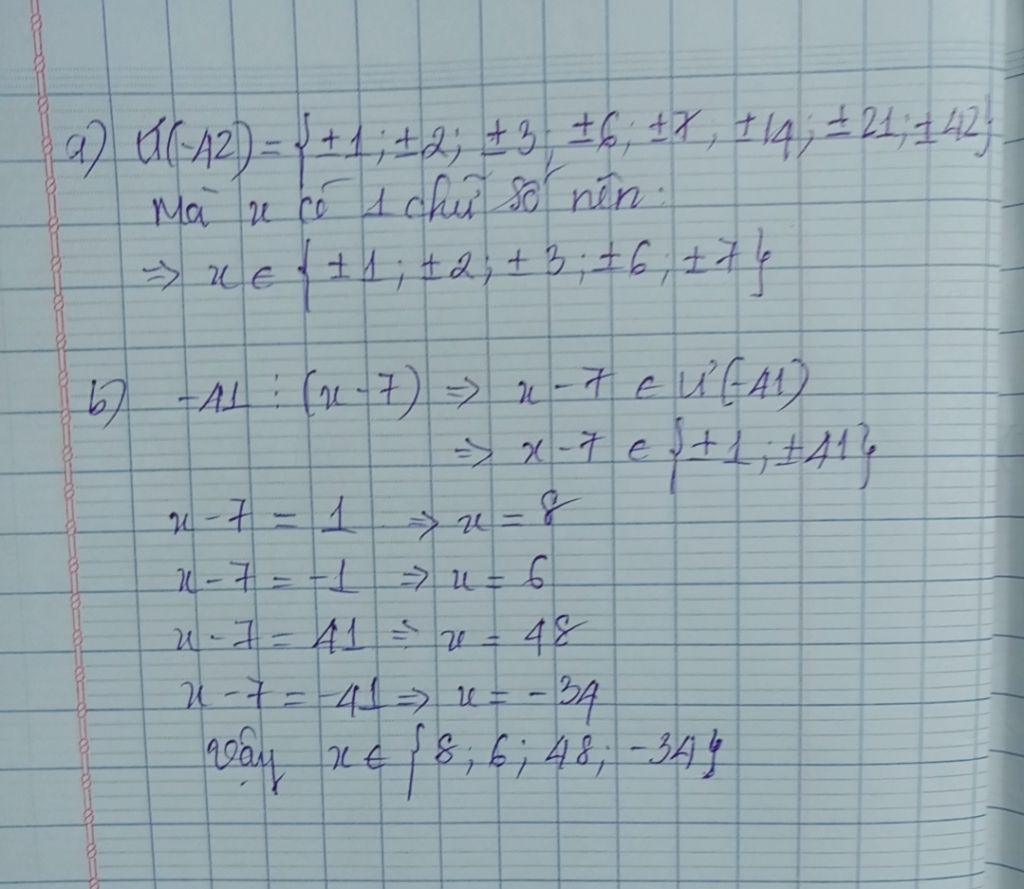 a) Ư(-42) = { ±1 ; ±2 ; ±3 ; ±6 ; ±7 ; ±14 ; ±21 ; ±42}
Mà x có 1 chữ số nên:
⇒ x ∈ { ±1 ; ±2 ; ±3 ; ±6 ; ±7 }
b) -41 ⋮ (x - 7) ⇒ x - 7 ∈ Ư(-41)
⇒ x - 7 ∈ { ±1 ; ±41}
x - 7 = 1 ⇒ x = 8
x - 7 = -1 ⇒ x = 6
x - 7 = 41 ⇒ x = 48
x - 7 = -41 ⇒ x = -34
Vậy x ∈ { 8 ; 6 ; 48 ; -34 }